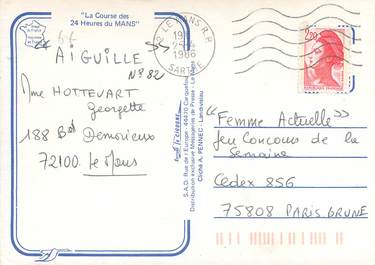 "La Course des
24 Heures du MANS"
"AIGUILLE"
N° 82
Mme HOTTEVART
Georgette
188 Bd Demorieux
72100. Le Mans
LE MANS R.P.
1986
SARTHE
2,20
"Femme Actuelle"
Jeu Concours de la
Semaine
Cedex 856
75808 PARIS BRUNE
S.A.O. Rue de l'Europe - 44470 Carquefou
Distribution exclusive Messageries Presse - Le Mans
Cliché A. PENNEC - Landivisiau